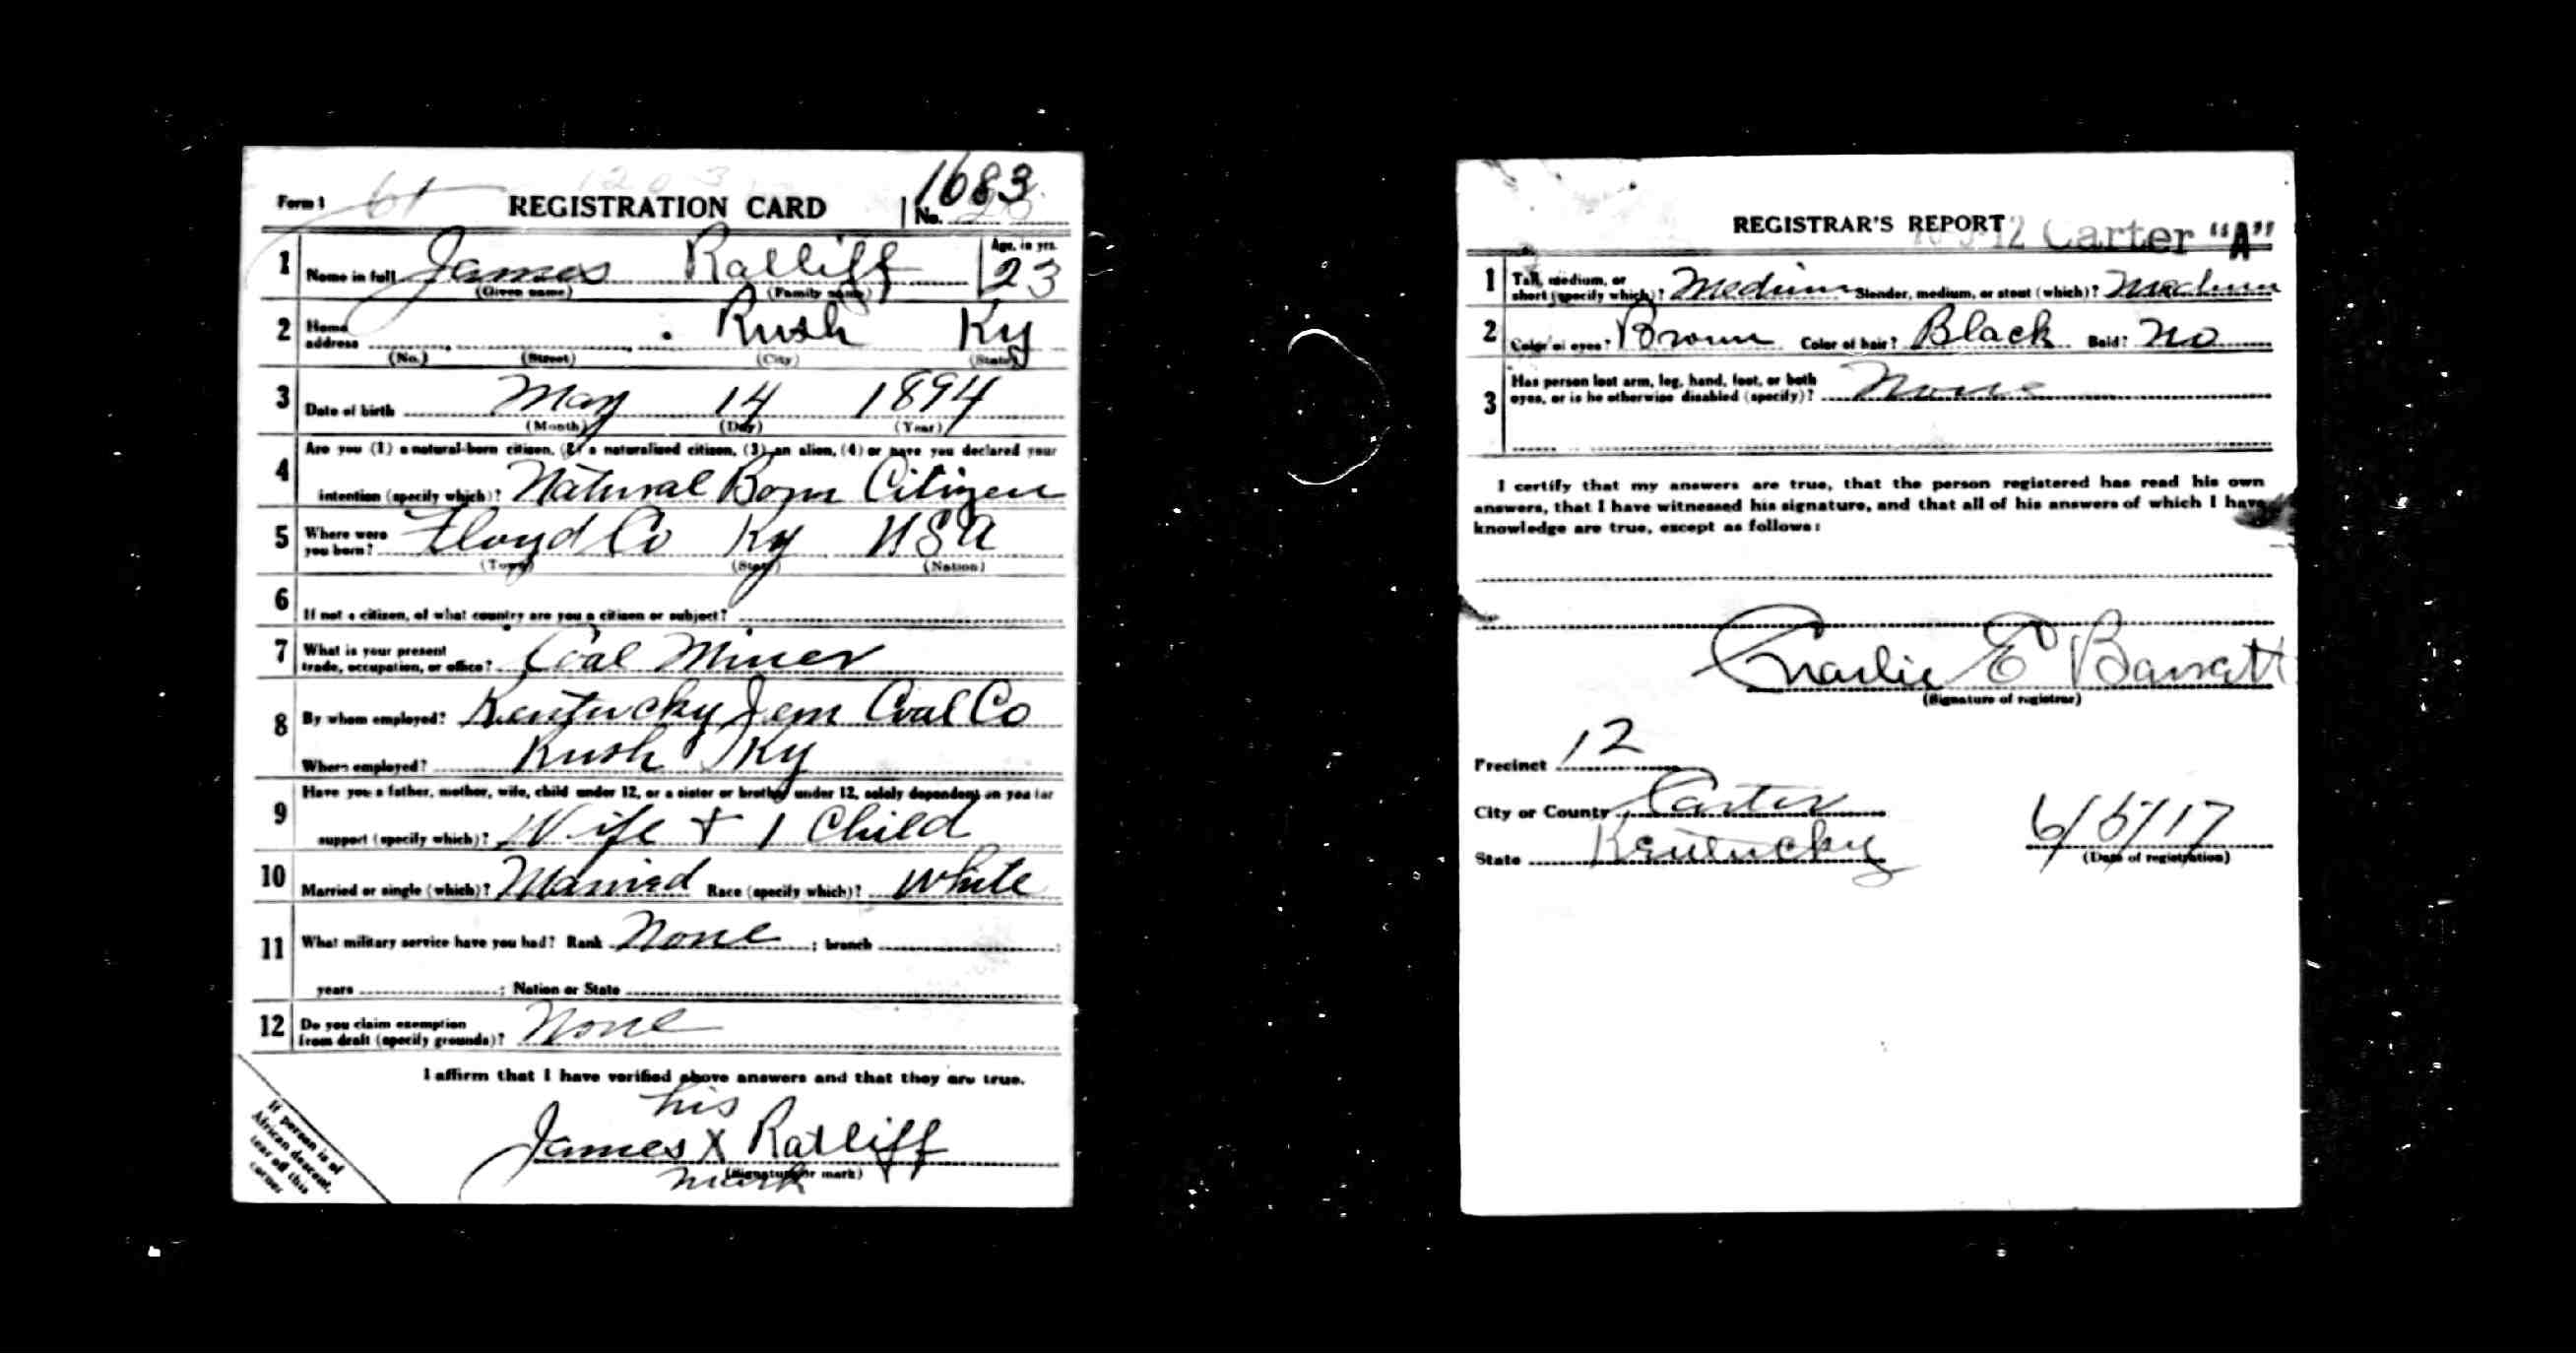 Form 1 REGISTRATION CARD No. 1683
1 Name in full James Ratliff Age, in yrs. 23
(Given name) (Family name)
2 Home address Rush Ky
(No.) (Street) (City) (State)
3 Date of birth May 14 1894
(Month) (Day) (Year)
4 Are you (1) a natural-born citizen, (2) a naturalized citizen, (3) an alien, (4) or have you declared your
intention (specify which)? Natural Born Citizen
5 Where were you born? Floyd Co Ky USA
(Town) (State) (Nation)
6 If not a citizen, of what country are you a citizen or subject?
7 What is your present trade, occupation, or office? Coal Miner
8 By whom employed? Kentucky Jem Coal Co
Where employed? Rush Ky
9 Have you a father, mother, wife, child under 12, or a sister or brother under 12, solely dependent on you for
support (specify which)? Wife + 1 Child
10 Married or single (which)? Married Race (specify which)? White
11 What military service have you had? Rank None ; branch ;
years ; Nation or State
12 Do you claim exemption from draft (specify grounds)? None
I affirm that I have verified above answers and that they are true.
his
James X Ratliff
(Signature or mark)
mark
If person is of
African descent,
tear off this
corner
REGISTRAR'S REPORT 12 Carter "A"
1 Tall, medium, or short (specify which)? Medium Slender, medium, or stout (which)? Medium
2 Color of eyes? Brown Color of hair? Black Bald? No
3 Has person lost arm, leg, hand, foot, or both
eyes, or is he otherwise disabled (specify)? None
I certify that my answers are true, that the person registered has read his own
answers, that I have witnessed his signature, and that all of his answers of which I have
knowledge are true, except as follows:
Charlie E Barratt
(Signature of registrar)
Precinct 12
City or County Carter
State Kentucky 6/5/17
(Date of registration)